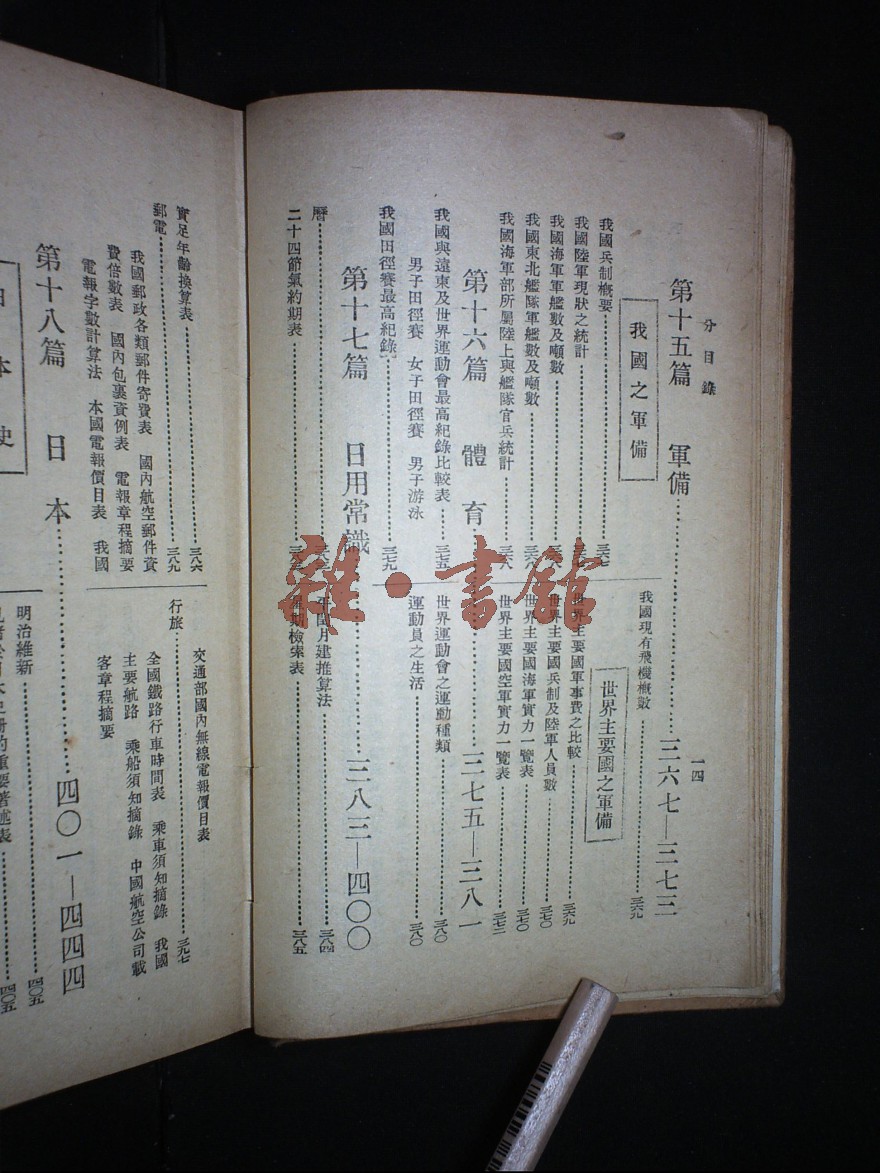 分目錄
一四
第十五篇 軍備……三六七—三七三
我國之軍備
我國兵制概要……三六七
我國陸軍現狀之統計……三六七
我國海軍軍艦數及噸數……三六八
我國東北艦隊軍艦數及噸數……三六八
我國海軍部所屬陸上與艦隊官兵統計……三六八
我國現有飛機概數……三六九
世界主要國之軍備
世界主要國軍事費之比較……三六九
世界主要國兵制及陸軍人員數……三七〇
世界主要國海軍實力一覽表……三七〇
世界主要國空軍實力一覽表……三七二
第十六篇 體育……三七五—三八一
我國與遠東及世界運動會最高紀錄比較表……三七五
男子田徑賽 女子田徑賽 男子游泳
我國田徑賽最高紀錄……三七九
世界運動會之運動種類……三八〇
運動員之生活……三八〇
第十七篇 日用常識……三八三—四〇〇
曆……三八三
二十四節氣約期表……
月建推算法……三八四
檢索表……三八五
實足年齡換算表……三八六
郵電……三八九
我國郵政各類郵件寄費表 國內航空郵件資
費倍數表 國內包裹資例表 電報章程摘要
電報字數計算法 本國電報價目表 我國
交通部國內無線電報價目表
行旅……三九七
全國鐵路行車時間表 乘車須知摘錄 我國
主要航路 乘船須知摘錄 中國航空公司載
客章程摘要
第十八篇 日本……四〇一—四四四
日本史
明治維新……四〇五
重要著述表……四〇五
雜·書館